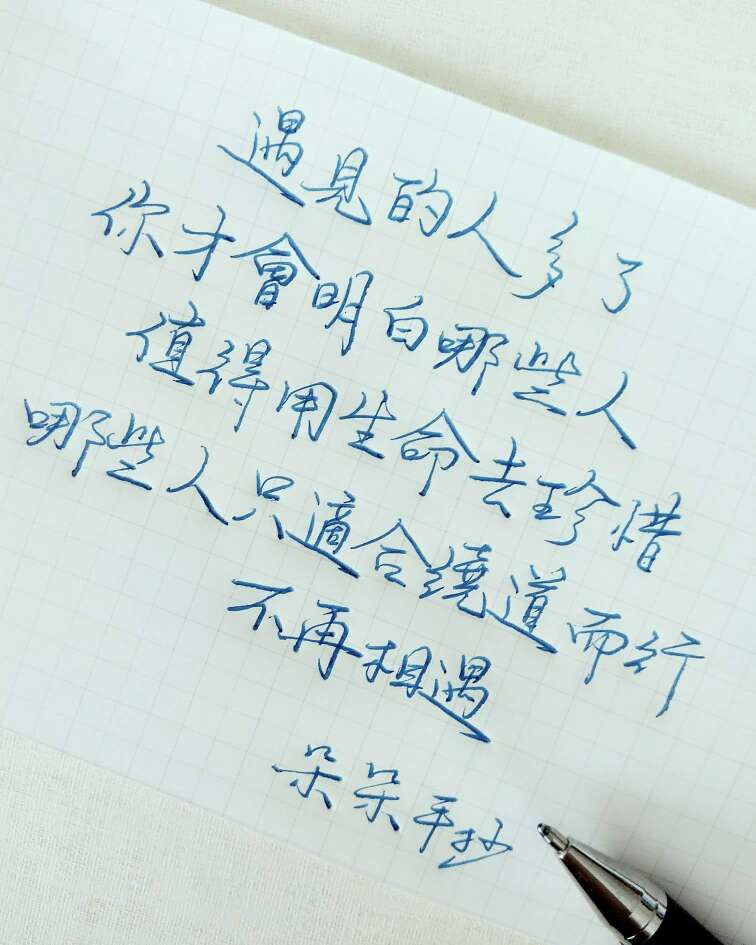 遇見的人多了
你才會明白哪些人
值得用生命去珍惜
哪些人只適合繞道而行
不再相遇
朵朵手抄